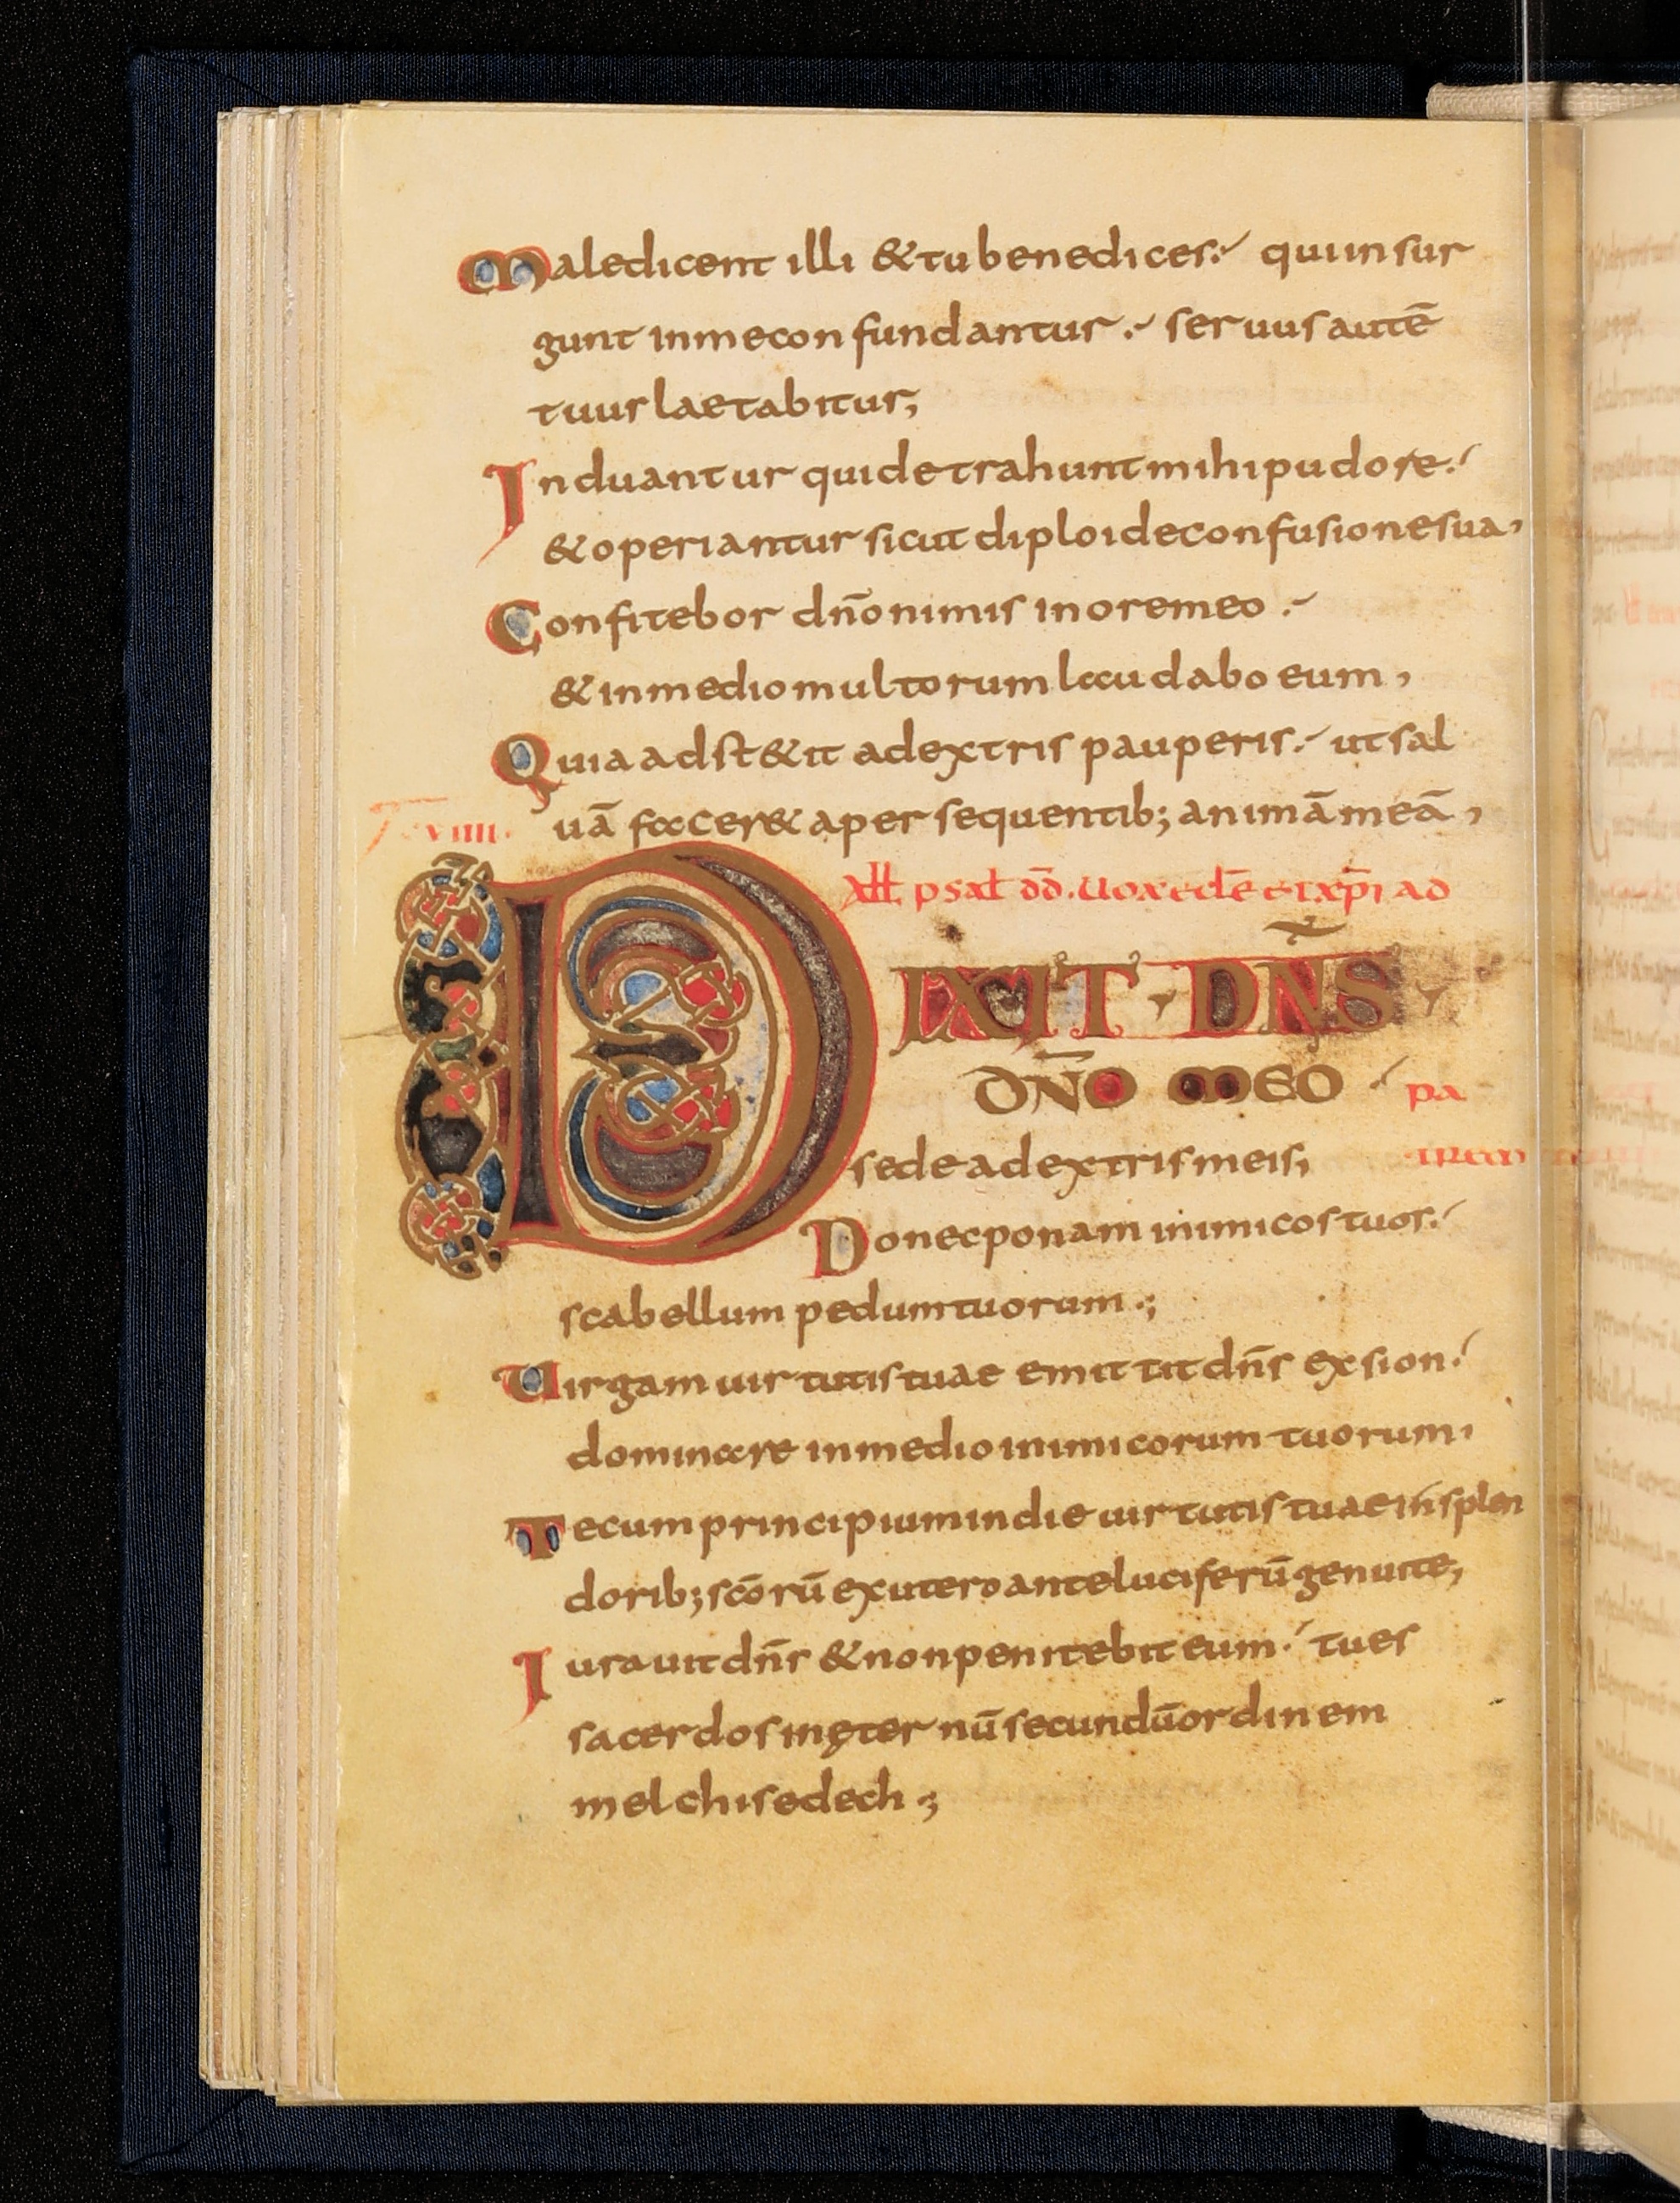 Maledicent illi & tu benedices; qui insur
gunt in me confundantur; seruus autē
tuus laetabitur;
Induantur qui detrahunt mihi pudore;
& operiantur sicut diploide confusione sua,
Confitebor dn̄o nimis in ore meo;
& in medio multorum laudabo eum,
Quia adst&it a dextris pauperis; ut sal
uā facer& a persequentib; animā meā,
viiii.
psal dd̄. Uox ecl̄e et xp̄i ad
DIXIT DN̄S
DN̄O MEO pa
sede a dextris meis;
Donec ponam inimicos tuos;
scabellum pedum tuorum;
Uirgam uirtutis tuae emittit dn̄s ex sion;
dominare in medio inimicorum tuorum,
Tecum principium in die uirtutis tuae in splen
dorib; scōrū ex utero ante luciferū genui te;
Iurauit dn̄s & non penitebit eum; tu es
sacerdos in ęternū secundū ordinem
melchisedech;